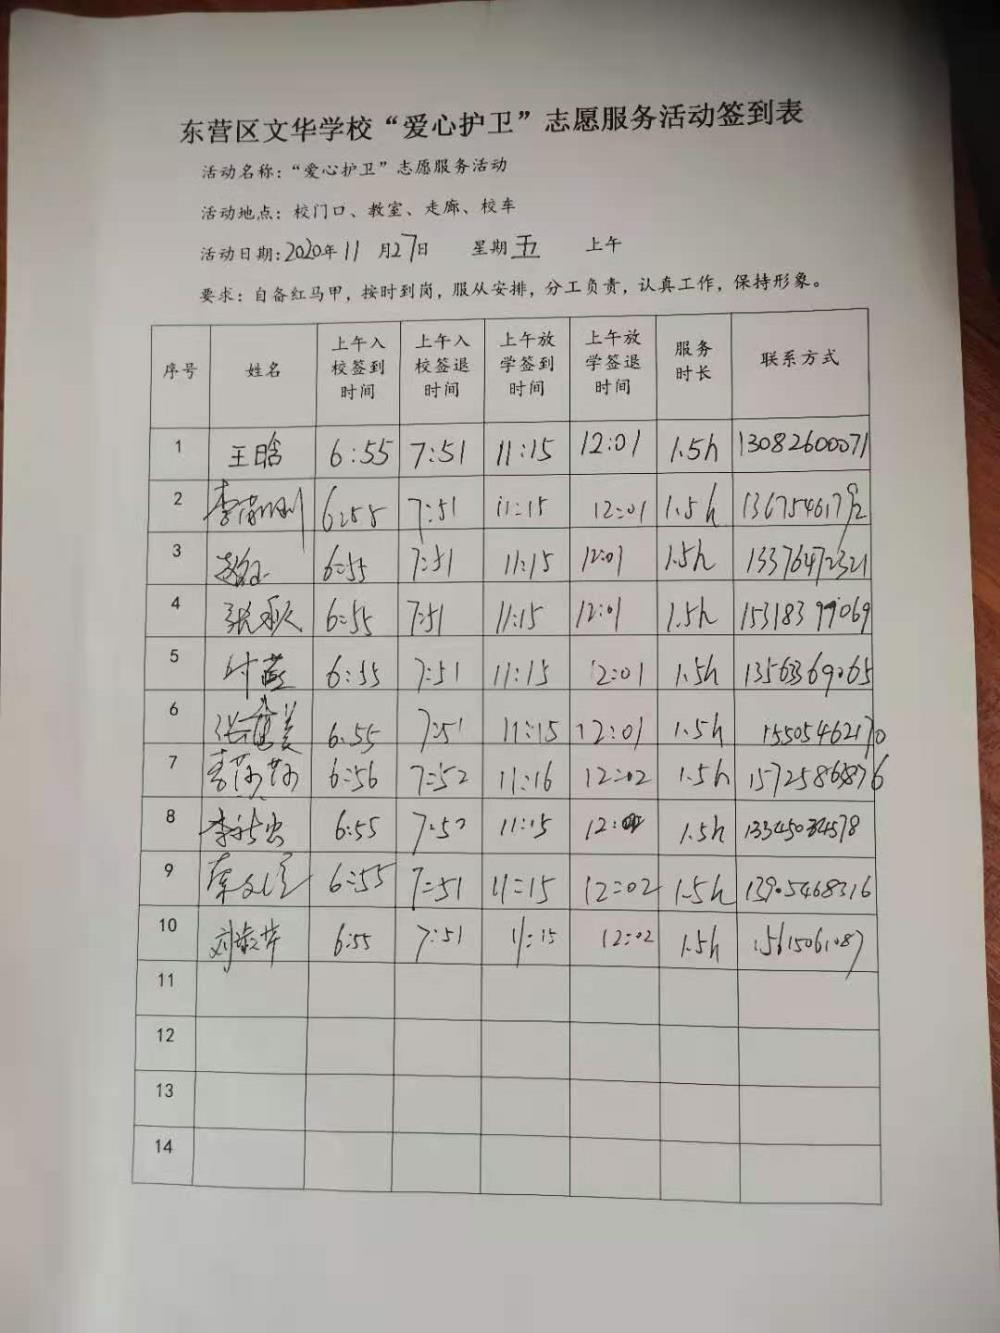 东营区文华学校“爱心护卫”志愿服务活动签到表
活动名称：“爱心护卫”志愿服务活动
活动地点：校门口、教室、走廊、校车
活动日期：2020年11月27日 星期五 上午
要求：自备红马甲，按时到岗，服从安排，分工负责，认真工作，保持形象。
序号 姓名 上午入校签到时间 上午入校签退时间 上午放学签到时间 上午放学签退时间 服务时长 联系方式
1 王晗 6:55 7:51 11:15 12:01 1.5h 13082600071
2 6:55 7:51 11:15 12:01 1.5h
3 6:55 7:51 11:15 12:01 1.5h 13376472321
4 6:55 7:51 11:15 12:01 1.5h 15318399069
5 付燕 6:55 7:51 11:15 12:01 1.5h 13563369065
6 6:55 7:51 11:15 12:01 1.5h 15505462170
7 李莎莎 6:56 7:52 11:16 12:02 1.5h
8 6:55 7:50 11:15 1.5h
9 6:55 7:51 11:15 12:02 1.5h 13905468316
10 6:55 7:51 11:15 12:02 1.5h 15615061087
11
12
13
14